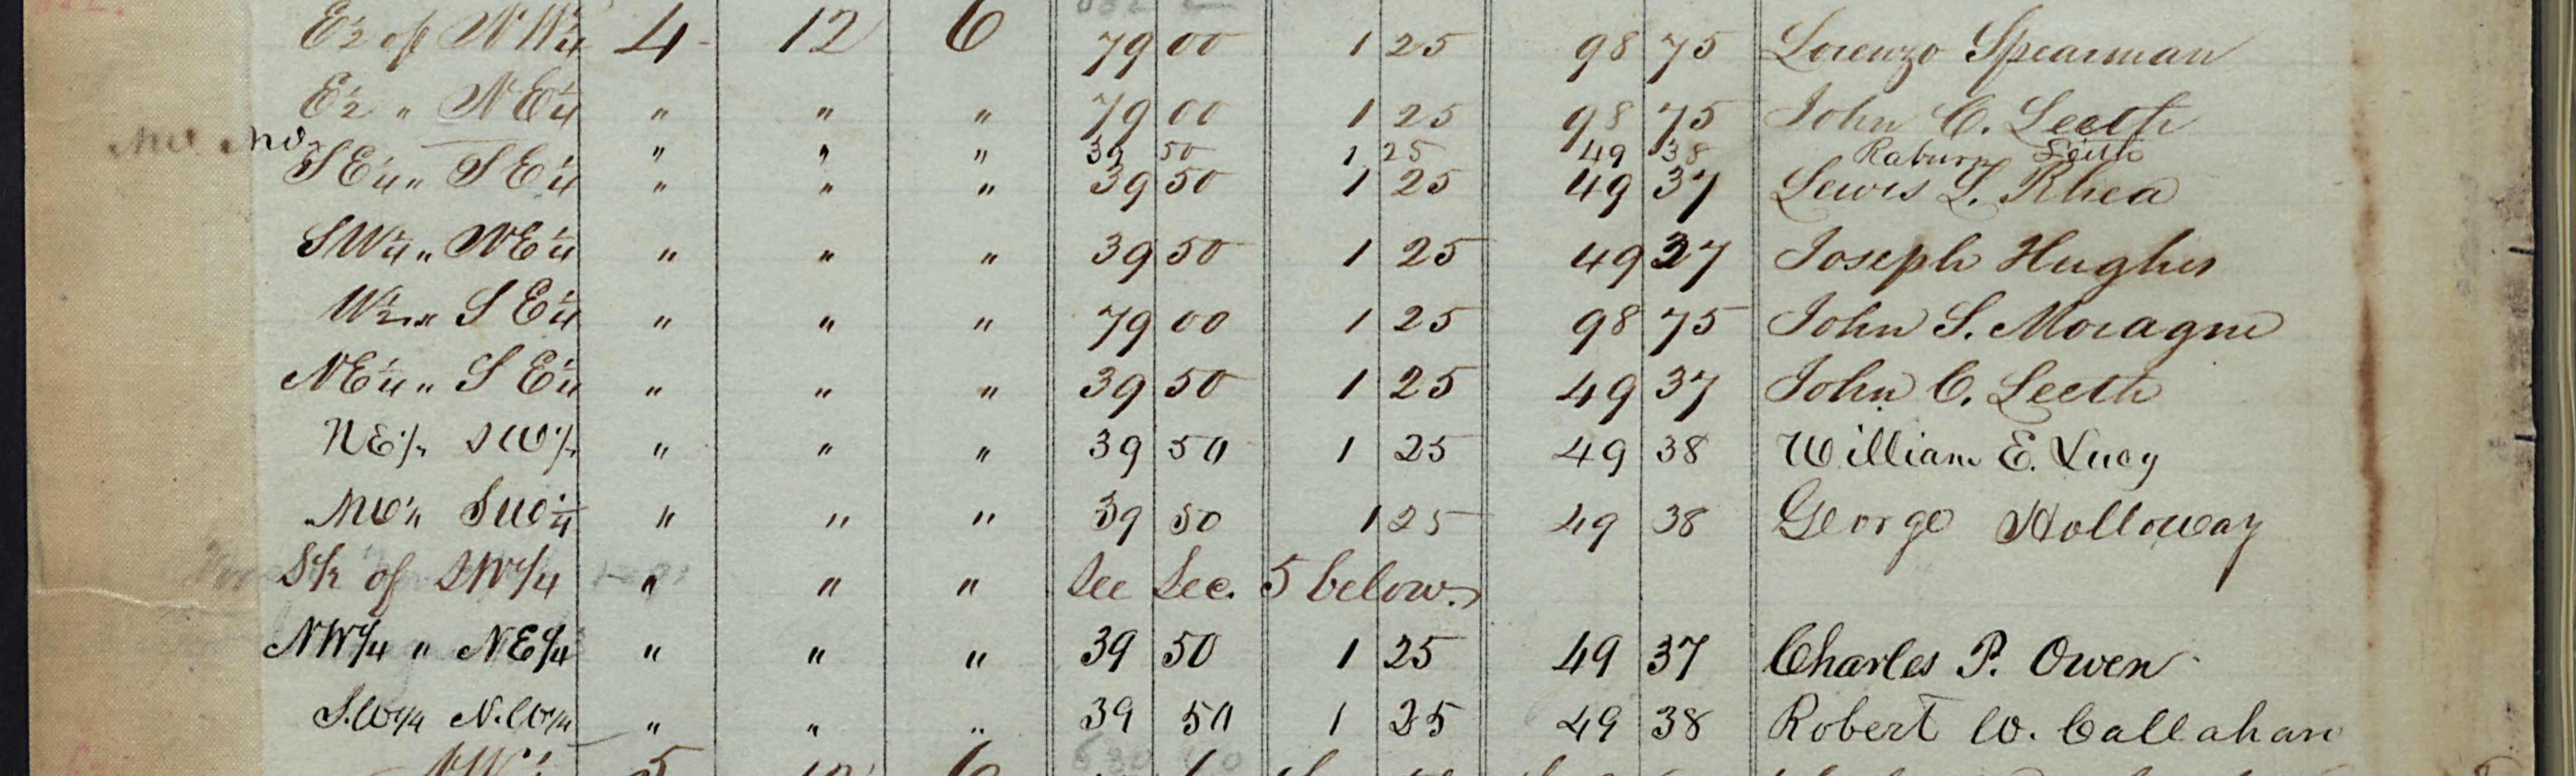 E½ of NW¼ 4 12 6 79 00 1 25 98 75 Lorenzo Spearman
E½ " NE¼ " " " 79 00 1 25 98 75 John C. Leeth
NW NW " " " 39 50 1 25 49 38 Raburn Leith
SE¼ " SE¼ " " " 39 50 1 25 49 37 Lewis L. Rhea
SW¼ " NE¼ " " " 39 50 1 25 49 37 Joseph Hughes
W½ " SE¼ " " " 79 00 1 25 98 75 John S. Moragne
NE¼ " SE¼ " " " 39 50 1 25 49 37 John C. Leeth
NE¼ SW¼ " " " 39 50 1 25 49 38 William E. Lucy
NW¼ SW¼ " " " 39 50 1 25 49 38 George Holloway
S½ of SW¼ " " " See Sec. 5 below.
NW¼ " NE¼ " " " 39 50 1 25 49 37 Charles P. Owen
S.W¼ N.W¼ " " " 39 50 1 25 49 38 Robert W. Callahan
5 12 6